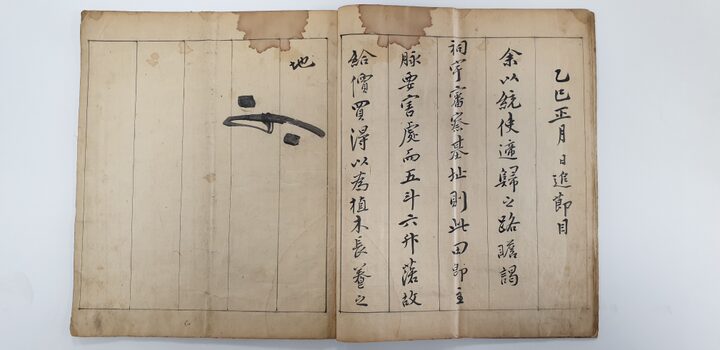 乙巳正月 日追節目
余以統使遞歸之路瞻謁
祠宇審察基址則此田卽主
脉要害處而五斗六升落故
給價買得以為植木長養之
地